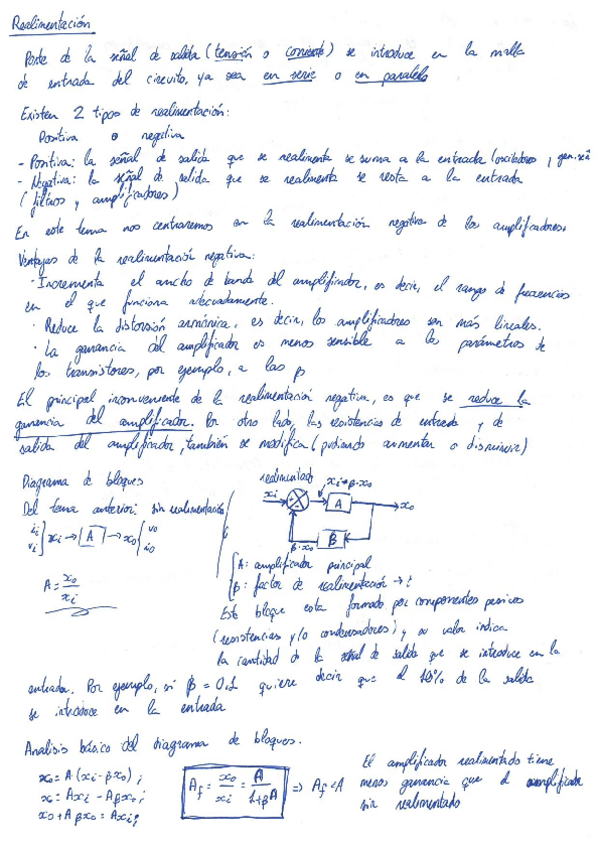 Realimentación
Parte de la señal de salida (tensión o corriente) se introduce en la malla
de entrada del circuito, ya sea en serie o en paralelo
Existen 2 tipos de realimentación:
Positiva o negativa
- Positiva: la señal de salida que se realimenta se suma a la entrada (osciladores,
- Negativa: la señal de salida que se realimenta se resta a la entrada
(filtros y amplificadores)
En este tema nos centraremos en la realimentación negativa de los amplificadores.
Ventajas de la realimentación negativa:
· Incrementa el ancho de banda del amplificador, es decir, el rango de frecuencias
en el que funciona adecuadamente.
· Reduce la distorsión armónica, es decir, los amplificadores son más lineales.
· La ganancia del amplificador es menos sensible a los parámetros de
los transistores, por ejemplo, a las β
El principal inconveniente de la realimentación negativa, es que se reduce la
ganancia del amplificador. Por otro lado, las resistencias de entrada y de
salida del amplificador, también se modifica (pudiendo aumentar o disminuir)
Diagrama de bloques
Del tema anterior: sin realimentación
ii
vi
xi → A → xo
vo
io
A = xo/xi
realimentado
xi
xi-β·xo
A
xo
β
β·xo
A: amplificador principal
β: factor de realimentación →
Este bloque esta formado por componentes pasivos
(resistencias y/o condensadores) y su valor indica
la cantidad de la señal de salida que se introduce en la
entrada. Por ejemplo, si β = 0,1 quiere decir que el 10% de la salida
se introduce en la entrada
Analisis básico del diagrama de bloques.
xo = A·(xi-βxo);
xo = Axi - Aβxo;
xo + Aβxo = Axi;
Af = xo/xi = A/(1+βA) ⇒ Af < A
El amplificador realimentado tiene
menos ganancia que el amplificador
sin realimentado